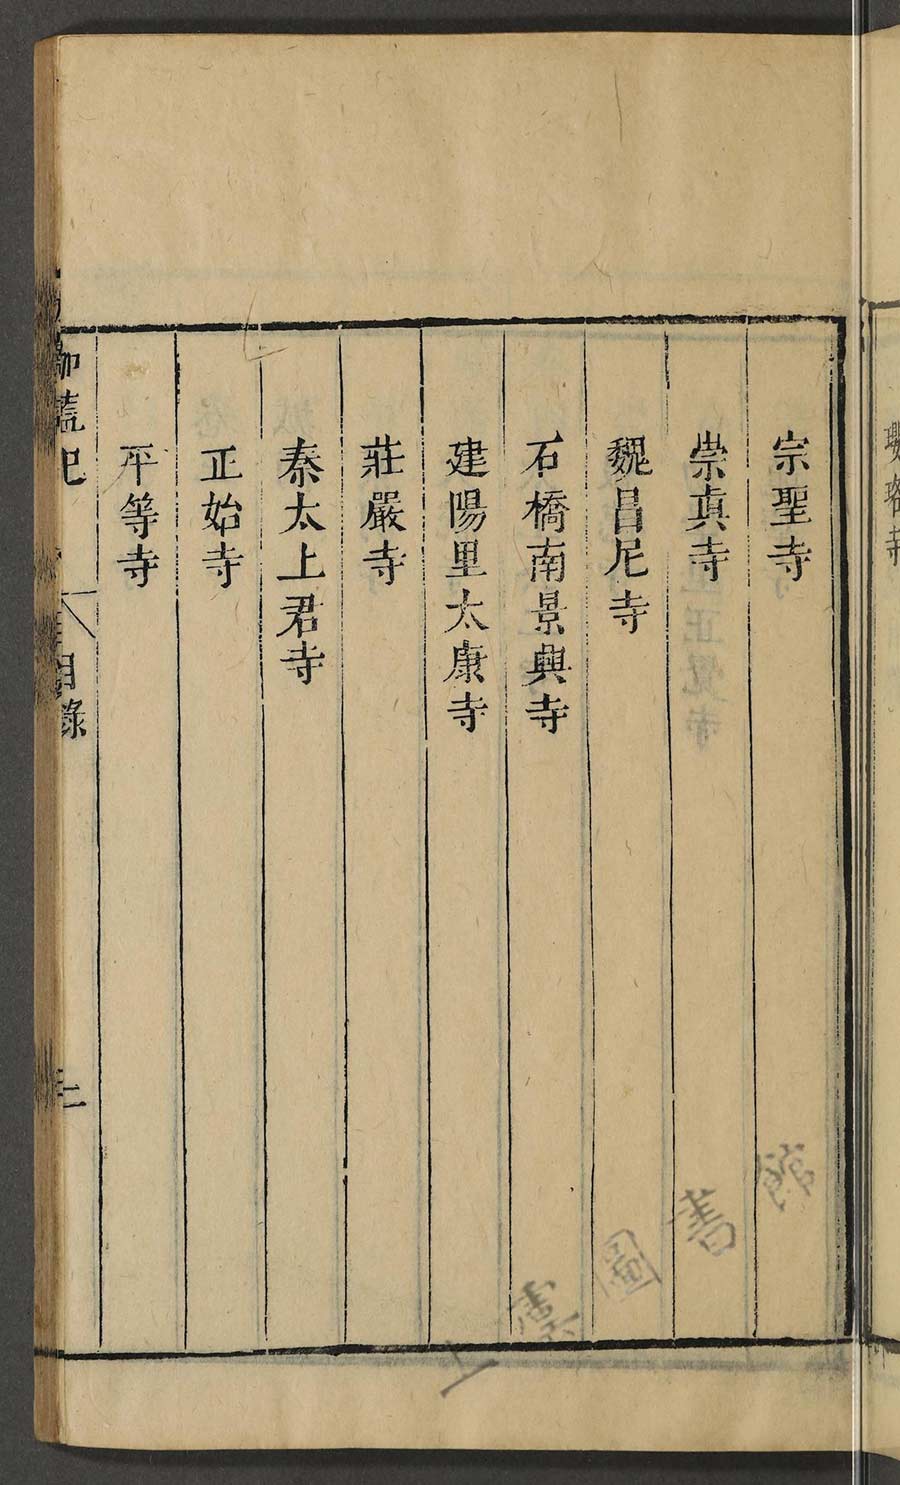 瓔珞寺
宗聖寺
崇真寺
魏昌尼寺
石橋南景興寺
建陽里太康寺
莊嚴寺
秦太上君寺
正始寺
平等寺
伽藍記
目錄
二
上虞圖書館